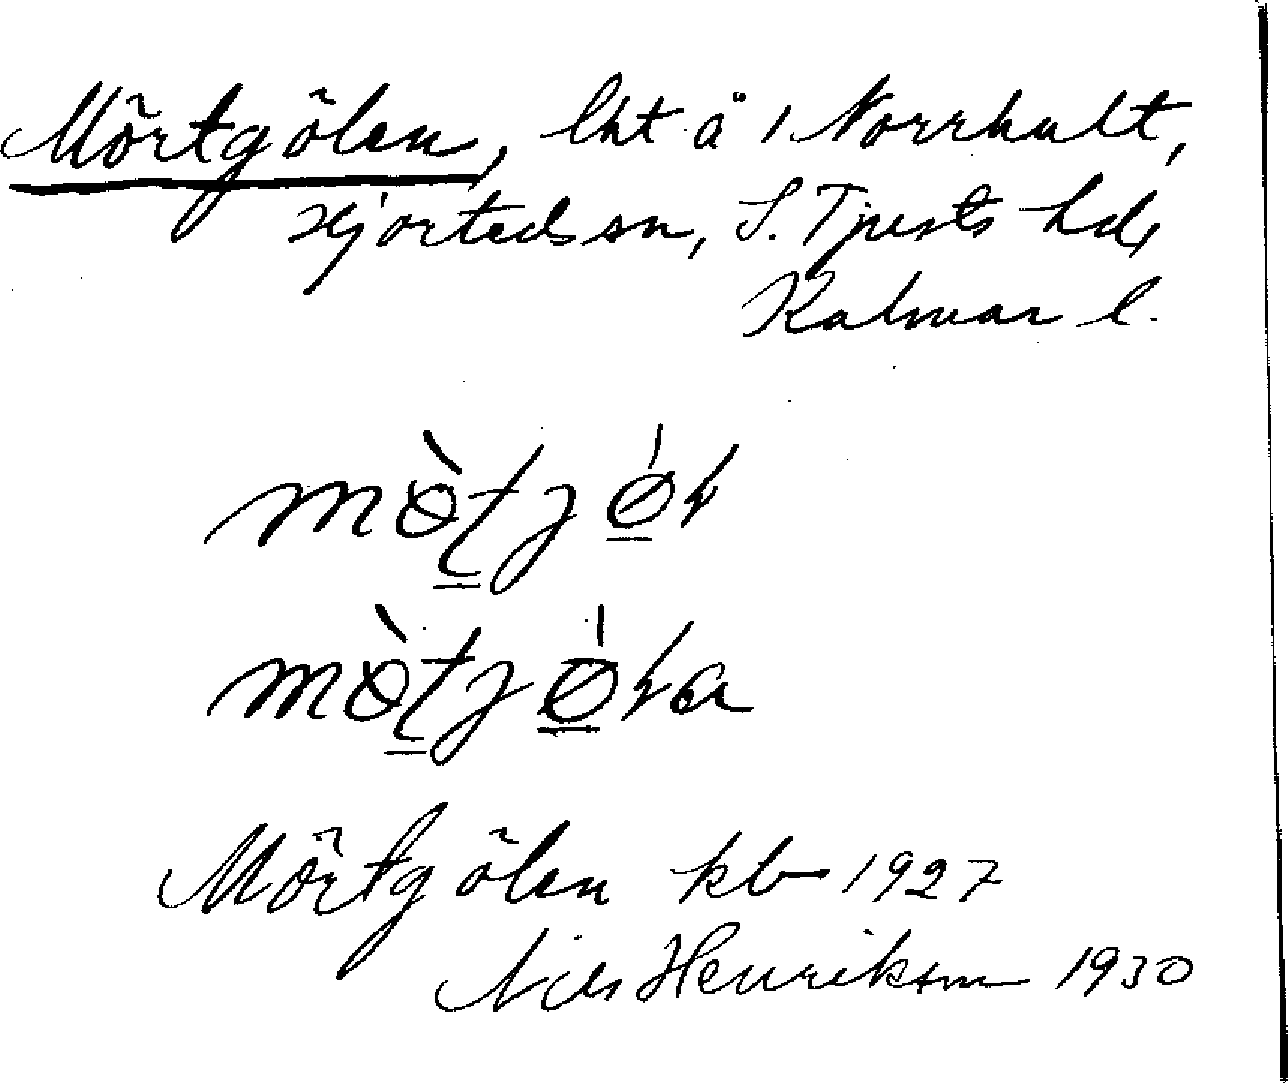 Mörtgölen, lht å 1 Norrhult,
Hjorteds sn, S. Tjusts hd,
Kalmar l.
Mörtgölen kb 1927
Nils Henrikson 1930